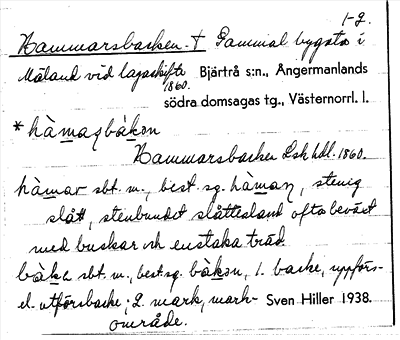 1-2.
Hammarsbacken. † Gammal bygata i
Måland vid lagaskifte 1860. Bjärtrå s:n., Ångermanlands
södra domsagas tg., Västernorrl. l.
* hàmaṣbàkən
Hammarsbacken Lsk hdl. 1860.
hàmar sbt. m., best. sg. hàmaṇ, stenig
slått, stenbundet slåttesland ofta beväxt
med buskar och enstaka träd.
bàka sbt. m., best sg. bàkən, 1. backe, uppförs-
el. utförsbacke; 2. mark, mark- Sven Hiller 1938.
område.